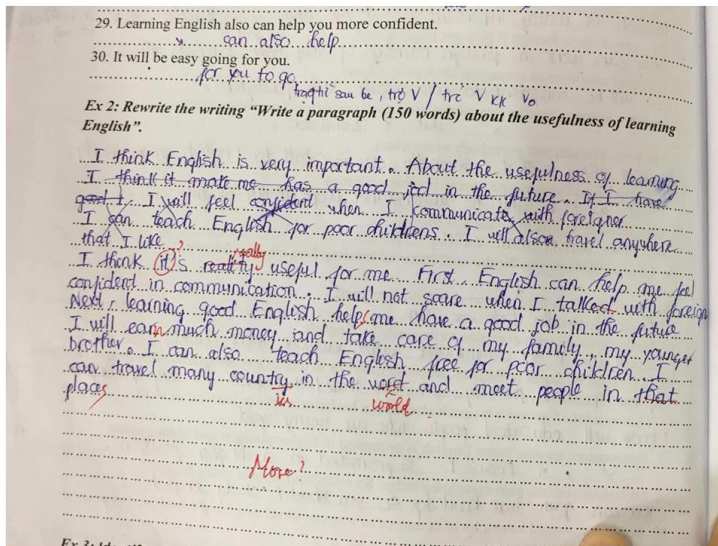 29. Learning English also can help you more confident.
can also help
30. It will be easy going for you.
for you to go
trạng từ sau be, trợ V / trc V
Ex 2: Rewrite the writing "Write a paragraph (150 words) about the usefulness of learning
English".
I think English is very important. About the usefulness of learning
I think it make me has a good jod in the future. If I have
good I will feel confident when I communicate with foreigner
I can teach English for poor childrens. I will also travel anywhere
that I like
really
I think it's useful for me. First, English can help me feel
confident in communication. I will not scare when I talked with foreign
Next, learning good English helps me have a good job in the future
I will earn much money and take care of my family, my younger
brother. I can also teach English free for poor children. I
can travel many country in the and meet people in that
places
ies world
More?